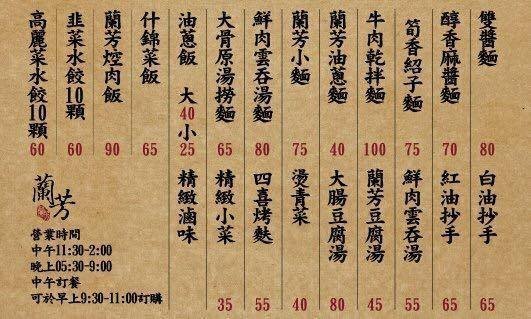 雙醬麵 80
醇香麻醬麵 70
筍香紹子麵 75
牛肉乾拌麵 100
蘭芳油蔥麵 40
蘭芳小麵 75
鮮肉雲吞湯麵 80
大骨原湯撈麵 65
油蔥飯 大40 小25
什錦菜飯 65
蘭芳焢肉飯 90
韭菜水餃10顆 60
高麗菜水餃10顆 60
白油抄手 65
紅油抄手 65
鮮肉雲吞湯 55
蘭芳豆腐湯 45
大腸豆腐湯 80
燙青菜 40
四喜烤麩 55
精緻小菜 35
精緻滷味
蘭芳
營業時間
中午11:30-2:00
晚上05:30-9:00
中午訂餐
可於早上9:30-11:00訂購